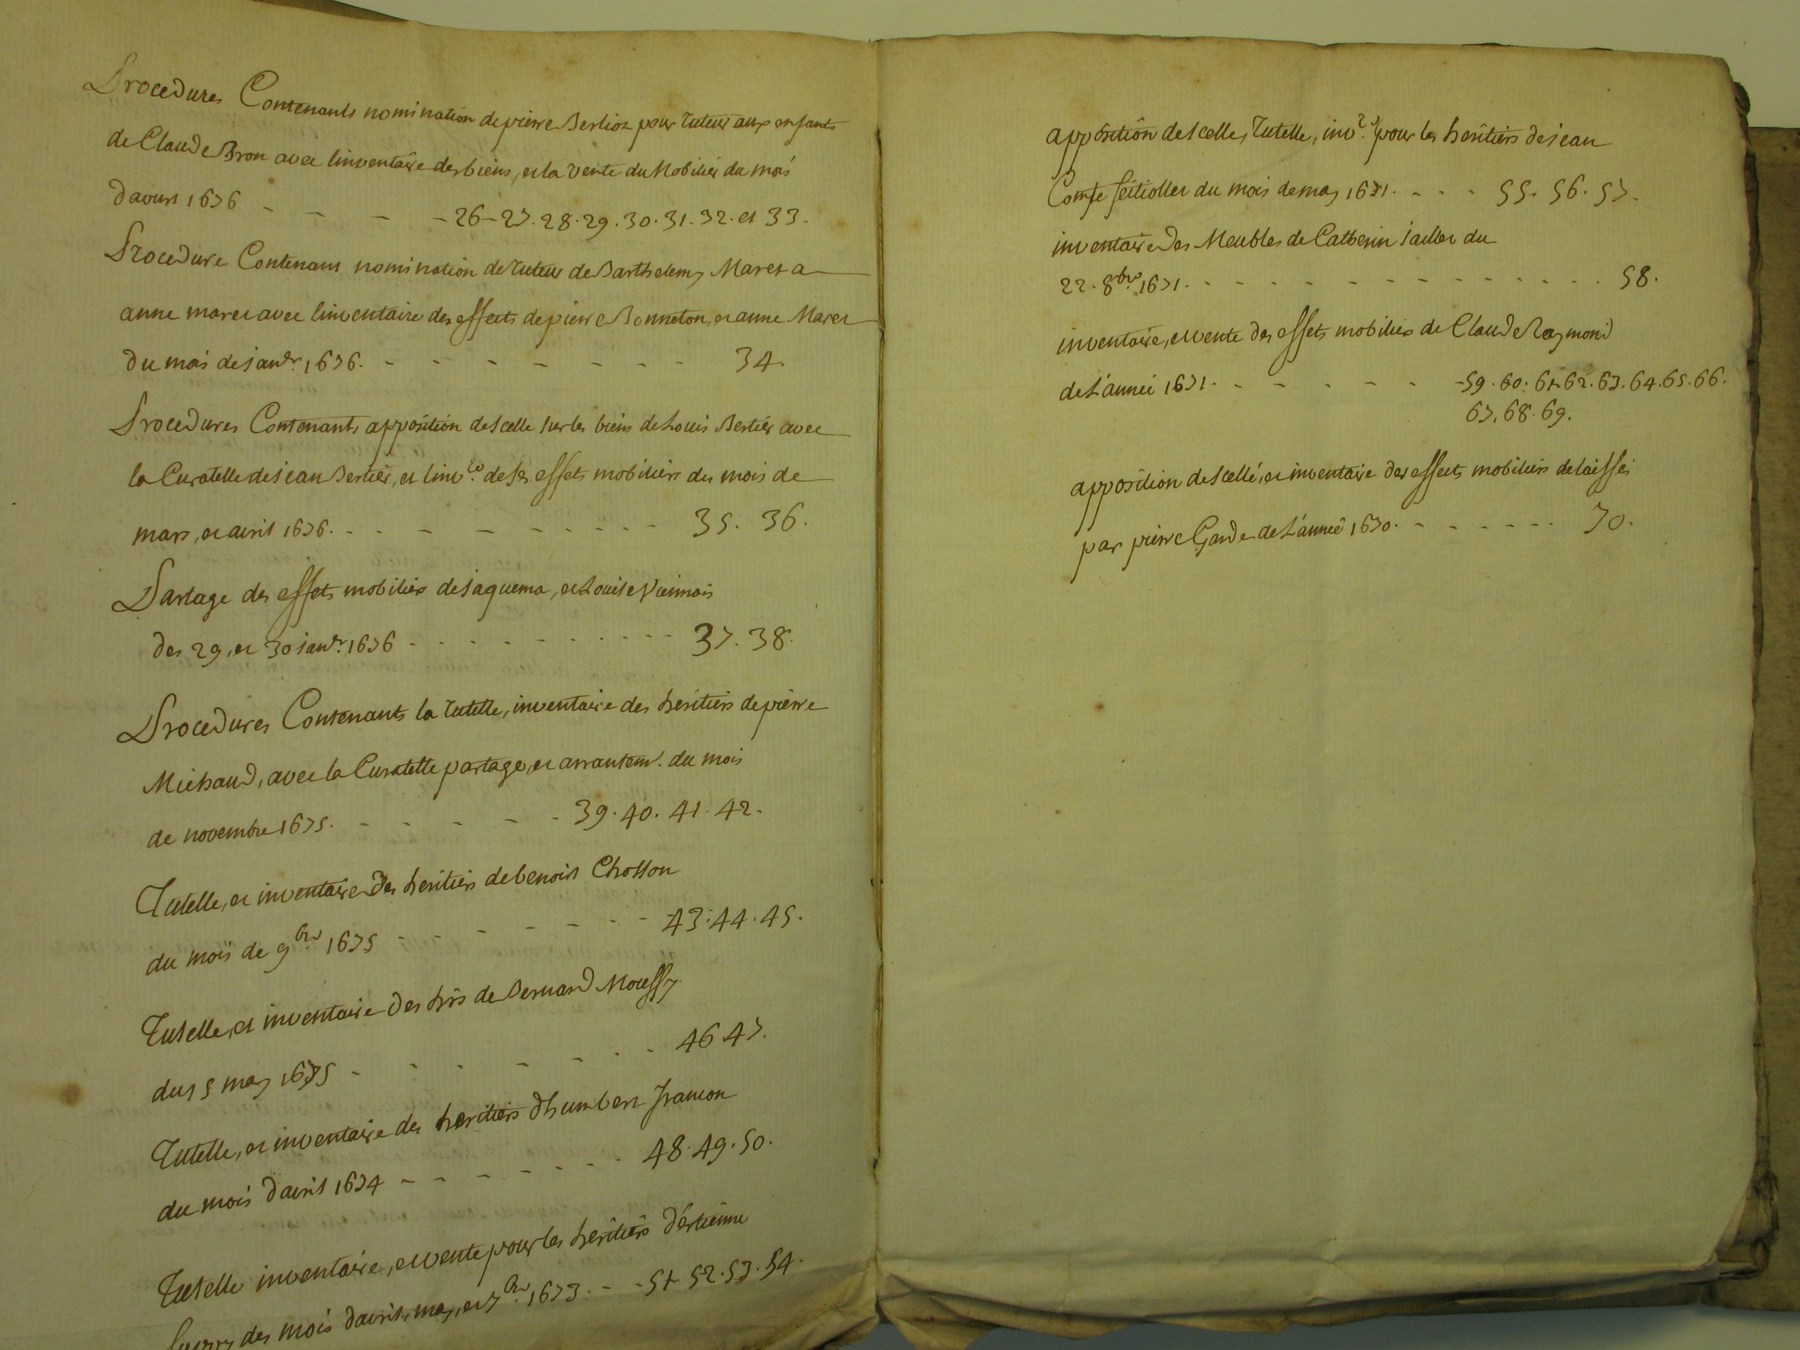 Procedures Contenants nomination de pierre Berlioz pour tuteur aux enfants
de Claude Bron avec linventaire des biens, et la vente du Mobilier du mois
davril 1676 - - - - 26-27.28.29.30.31.32. et 33.
Procedure Contenant nomination de tuteur de Barthelemy Maret a
anne maret avec linventaire des effects de pierre Bonneton, et anne Maret
du mois de janer. 1676. - - - - - - - 34.
Procedures Contenants apposition de scelle sur les biens de Louis Bertier avec
la Curatelle de jean Bertier, et linvre. de ses effets mobiliers du mois de
mars, et avril 1676. - - - - - - - - - 35. 36.
Partage des effets mobiliers de jaquema, et Louise Viennois
des 29, et 30 janvr. 1676 - - - - - - - - - - 37. 38.
Procedures Contenants la tutelle, inventaire des heritiers de pierre
Michaud, avec la Curatelle partage, et arrantemt. du mois
de novembre 1675. - - - - - - 39. 40. 41. 42.
Tutelle, et inventaire des heritiers de benoist Chosson
du mois de 9bre 1675 - - - - - - - 43. 44. 45.
Tutelle, et inventaire des hrs de Bernard Moussy
du 15 may 1675 - - - - - - - 46 47.
Tutelle, et inventaire des heritiers dhumbert francon
du mois davril 1674 - - - - - - - 48. 49. 50.
Tutelle inventaire, et vente pour les heritiers d'estienne
des mois davril, may, et 7bre. 1673. - - 51. 52. 53. 54.
apposition de scelle, tutelle, invre. pour les heritiers de jean
du mois de may 1671. - - - 55. 56. 57.
inventaire des Meubles de Catherin jailler du
22. 8bre. 1671. - - - - - - - - - - - - - - 58.
inventaire, et vente des effets mobiliers de Claude Raymond
de L'année 1671. - - - - - - 59. 60. 61. 62. 63. 64. 65. 66.
67. 68. 69.
apposition de scellé, et inventaire des effects mobiliers delaissés
par pierre Garde de L'année 1670. - - - - - - - 70.